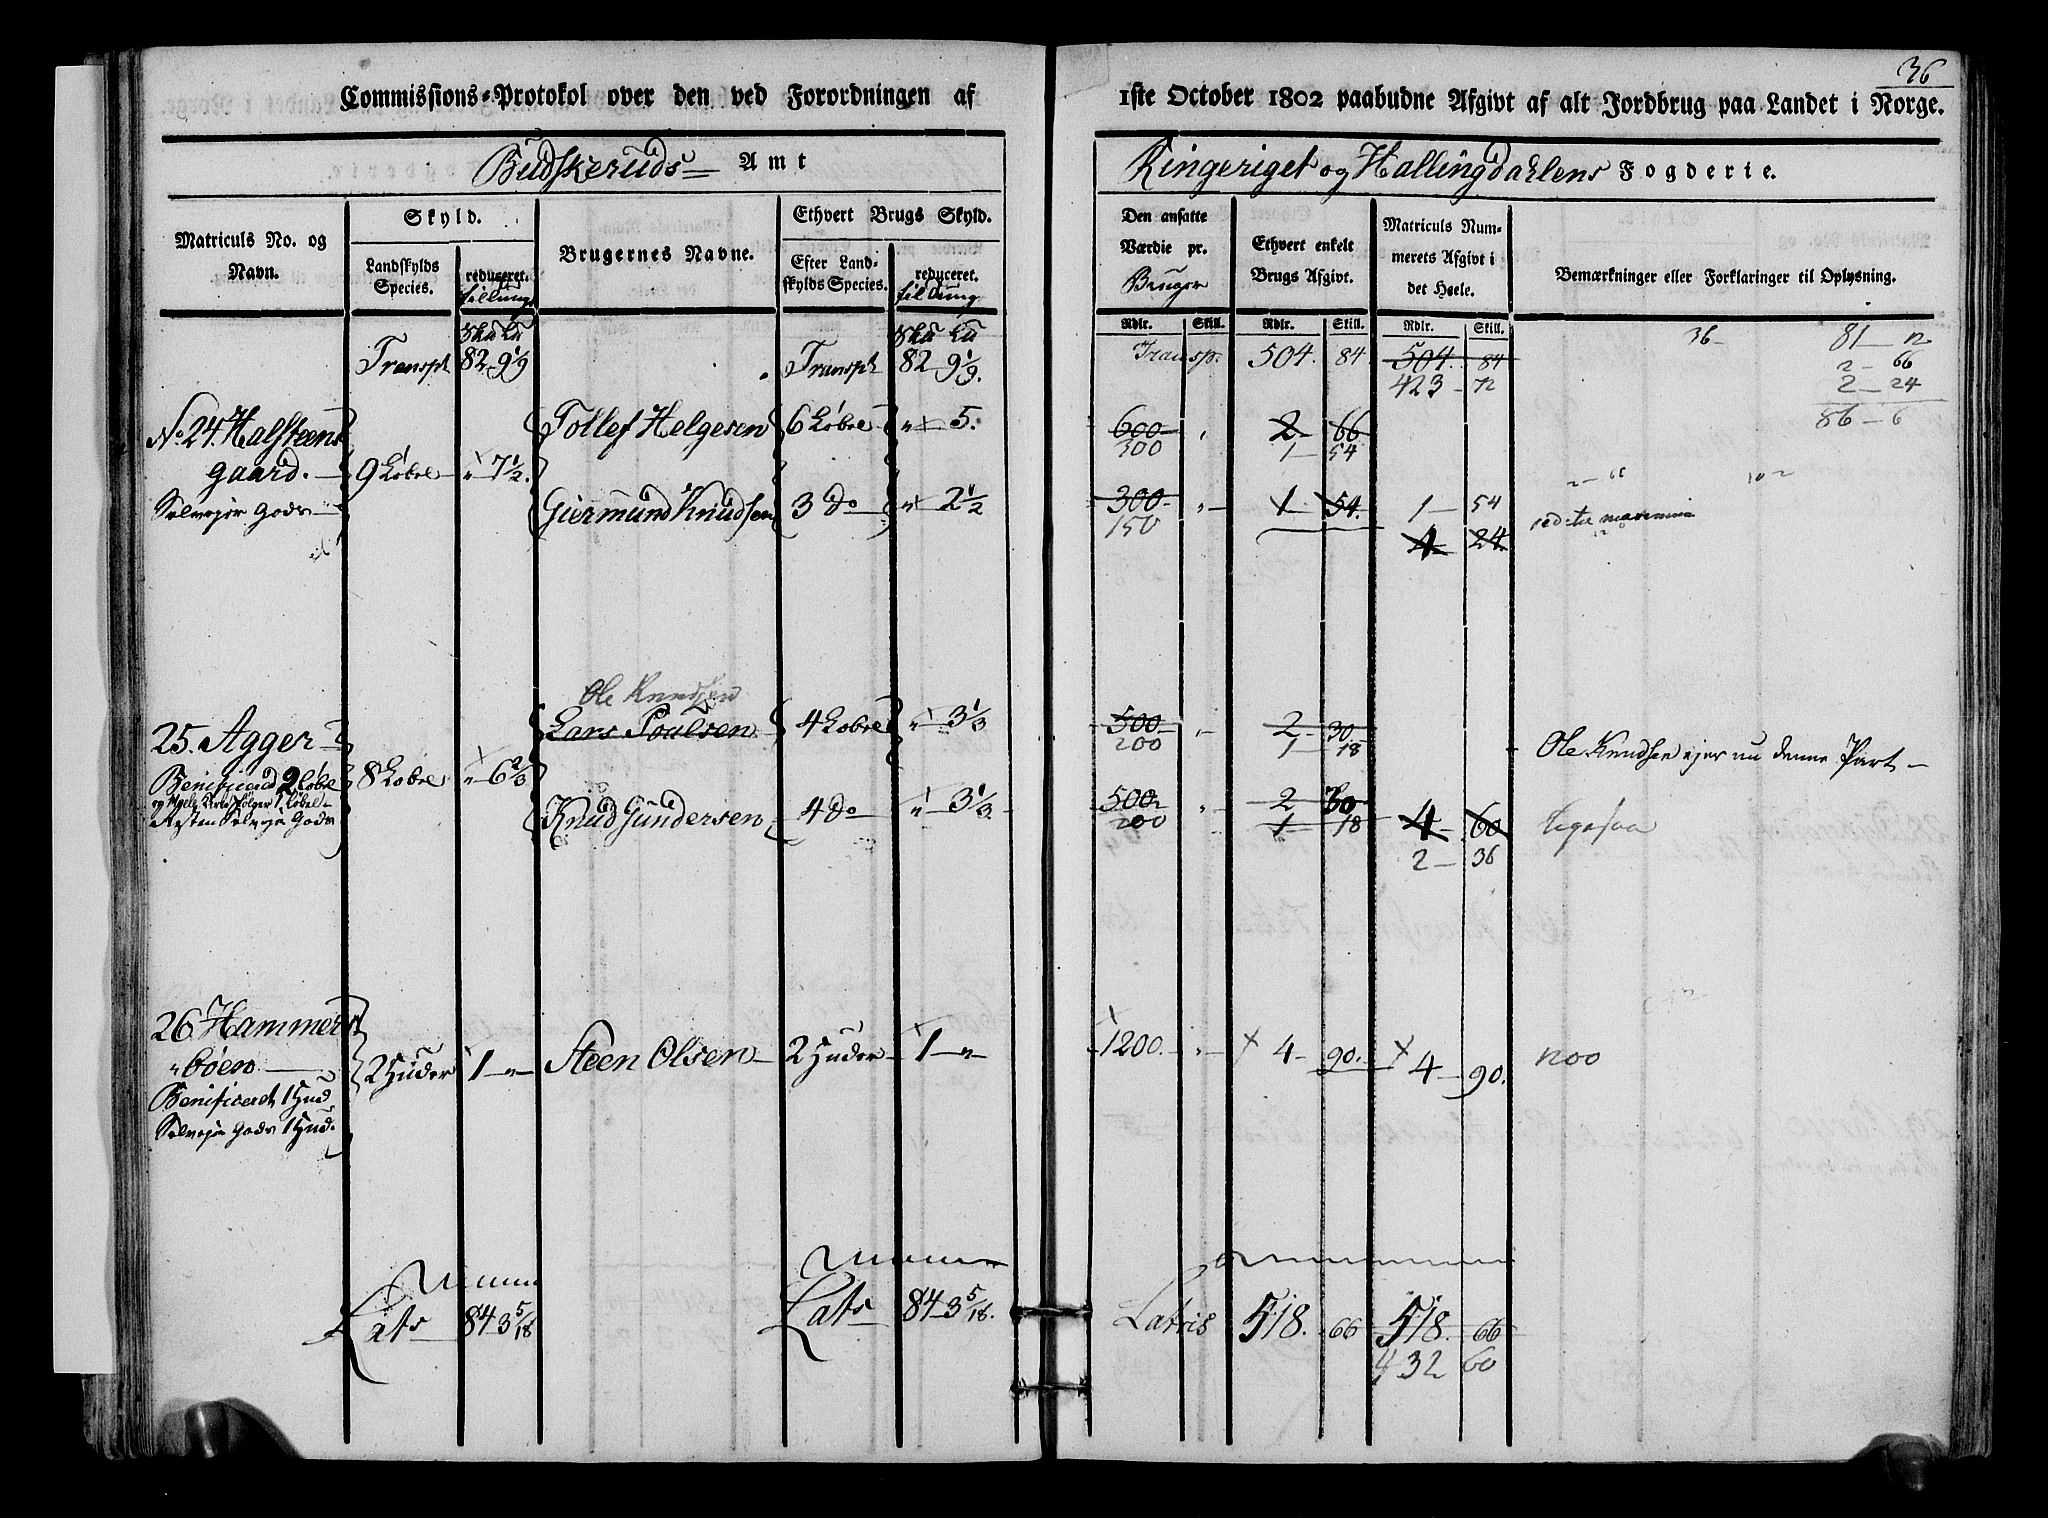 36
Commissions-Protokol over den ved Forordningen af 1ste October 1802 paabudne Afgivt af alt Jordbrug paa Landet i Norge.
Budskeruds Amt
Ringeriget og Hallingdahlens Fogderie.
Matriculs No. og Navn.
Skyld.
Landskylds Species.
reduceret.
Brugernes Navne.
Ethvert Brugs Skyld.
Efter Landskylds Species.
reduceret.
Den ansatte Værdie pr. Bruger
Ethvert enkelt Brugs Afgivt.
Matriculs Nummerets Afgivt i det Heele.
Bemærkninger eller Forklaringer til Oplysning.
Rdlr. Skill. Rdlr. Skill. Rdlr. Skill.
Transpt 82 9 1/9 Transpt 82 9 1/9. Transp. 504. 84 504. 84 36 81 12
423 72 2 66
2 24
86 6
No 24. Halsteens Tollef Helgesen 6 Løbel " 5. 600 " 2 66
gaard. 9 Løbel " 7 1/2. 300 1 54
Selvejer Gods Giermund Knudsen 3 do " 2 1/2 300 " 1 54. 1 54
150 4 24.
Ole Knudsen
25. Agger Lars Poulsen 4 Løbel " 3 1/3 500 " 2 30
200 1 18 Ole Knudsen ejer nu denne Part
Benificered 2 Løbel 8 Løbel " 6 2/3
Resten Selvejer Gods Knud Gundersen 4 do " 3 1/3 500 " 2 30
200 1 18 4 60 ligesaa
2 36
26 Hammers
bøen 2 Huder 1 " Steen Olsen 2 Huder 1 " 1200. " 4 90. 4 90.
Benificeret 1 Hud
Selvejer Gods 1 Hud.
Lats 84 3 5/18 Lats 84 3 5/18. Latris 518. 66 518. 66
432 60